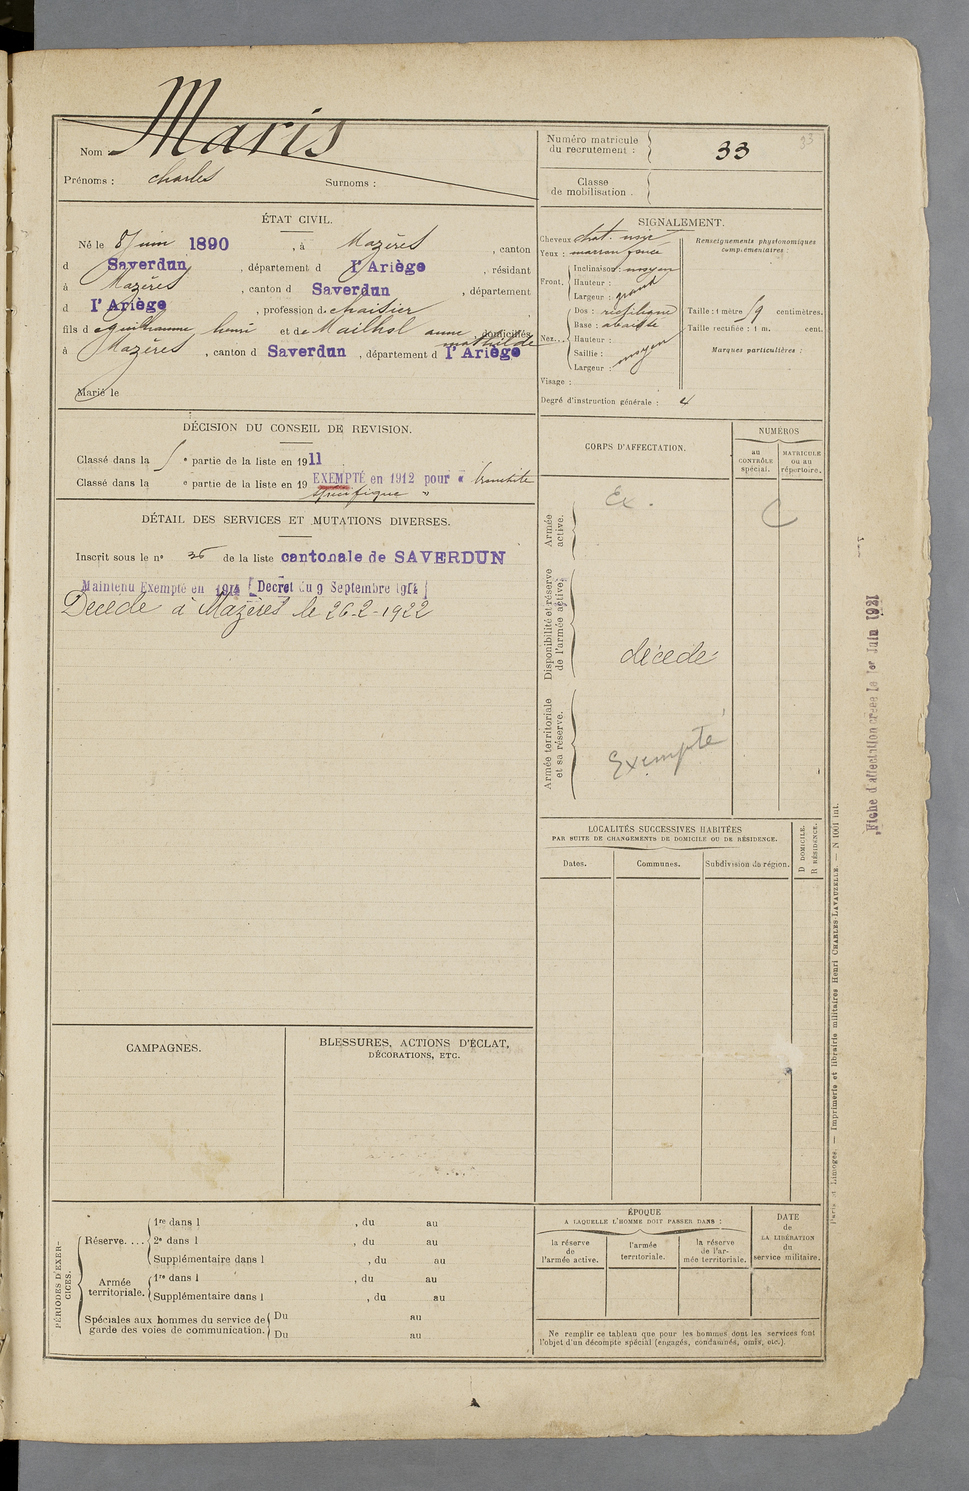 Nom : Maris
Prénoms : charles Surnoms :
Numéro matricule du recrutement : 33
33
Classe de mobilisation :
ÉTAT CIVIL.
Né le 8 juin 1890, à Mazères, canton
d Saverdun, département d l'Ariège, résidant
à Mazères, canton d Saverdun, département
d l'Ariège, profession de chaisier
fils de guilhaume henri et de Mailhol anne mathilde domiciliés
à Mazères, canton d Saverdun, département d l'Ariège
Marié le
SIGNALEMENT.
Cheveux chat. noir
Yeux : marron foncé
Front. Inclinaison : moyen
Hauteur :
Largeur : grand
Nez... Dos : rectiligne
Base : abaissée
Hauteur :
Saillie : moyen
Largeur :
Visage :
Renseignements physionomiques complémentaires :
Taille : 1 mètre 59 centimètres.
Taille rectifiée : 1 m. cent.
Marques particulières :
Degré d'instruction générale :
DÉCISION DU CONSEIL DE REVISION.
Classé dans la 5e partie de la liste en 1911
Classé dans la e partie de la liste en 19 EXEMPTÉ en 1912 pour « bronchite
spécifique »
DÉTAIL DES SERVICES ET MUTATIONS DIVERSES.
Inscrit sous le n° 35 de la liste cantonale de SAVERDUN
Maintenu Exempté en 1914 [Decret du 9 Septembre 1914]
Décédé à Mazères le 26-2-1922
CORPS D'AFFECTATION.
NUMÉROS
au CONTRÔLE spécial.
MATRICULE ou au répertoire.
Armée active.
Ex.
Disponibilité et réserve de l'armée active.
décédé
Armée territoriale et sa réserve.
Exempté
LOCALITÉS SUCCESSIVES HABITÉES
PAR SUITE DE CHANGEMENTS DE DOMICILE OU DE RÉSIDENCE.
Dates. Communes. Subdivision de région.
D DOMICILE.
R RÉSIDENCE.
CAMPAGNES.
BLESSURES, ACTIONS D'ÉCLAT,
DÉCORATIONS, ETC.
PÉRIODES D'EXERCICES.
Réserve.... 1re dans l , du au
2e dans l , du au
Supplémentaire dans l , du au
Armée territoriale. 1re dans l , du au
Supplémentaire dans l , du au
Spéciales aux hommes du service de garde des voies de communication. Du au
Du au
ÉPOQUE
A LAQUELLE L'HOMME DOIT PASSER DANS :
la réserve de l'armée active.
l'armée territoriale.
la réserve de l'armée territoriale.
DATE de LA LIBÉRATION du service militaire.
Ne remplir ce tableau que pour les hommes dont les services font
l'objet d'un décompte spécial (engagés, condamnés, omis, etc.).
Paris et Limoges. — Imprimerie et librairie militaires Henri CHARLES-LAVAUZELLE. — N 1001 int.
Fiche d'affectation créée le 1er Juin 1921